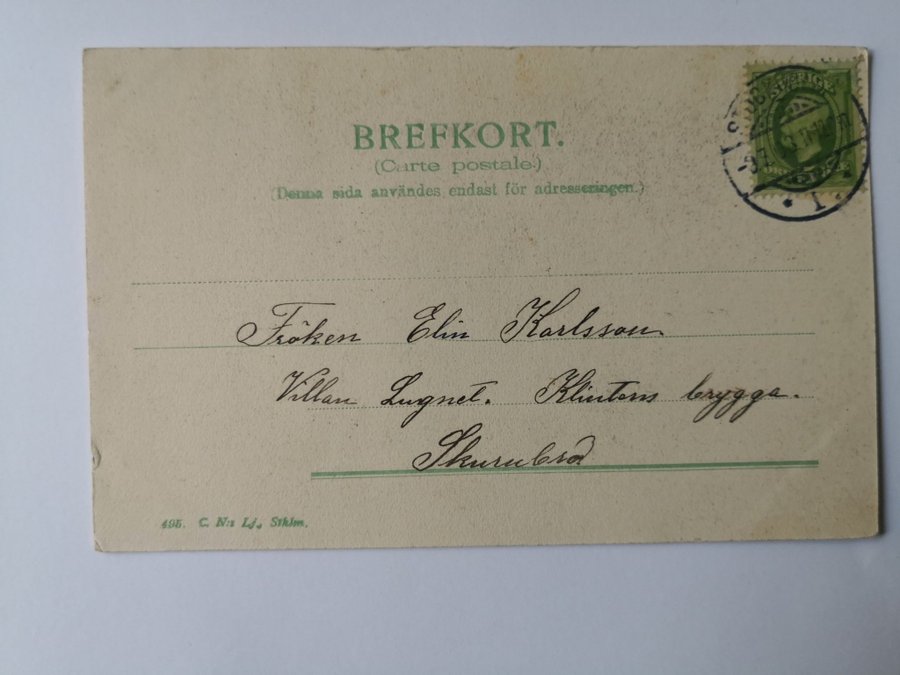 BREFKORT.
(Carte postale.)
(Denna sida användes endast för adresseringen.)
SVERIGE
Fröken Elin Karlsson.
Villan Lugnet. Klintens brygga.
Skurubro
495. C. N:s Lj., Sthlm.